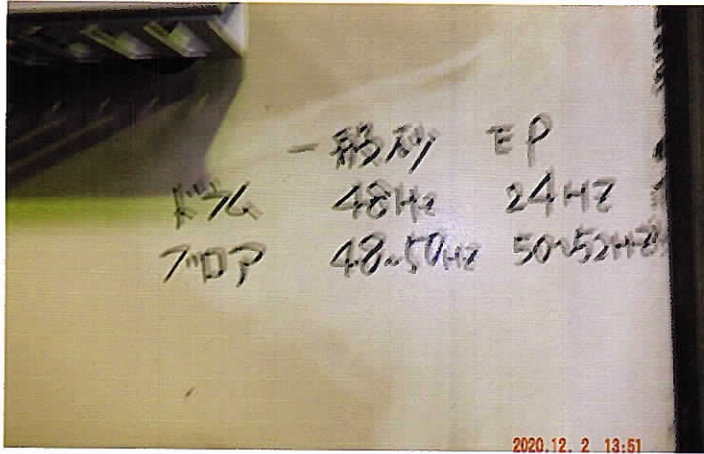 EP
ドラム 48Hz 24HZ
ブロア 48~50HZ 50~52HZ
2020.12. 2 13:51